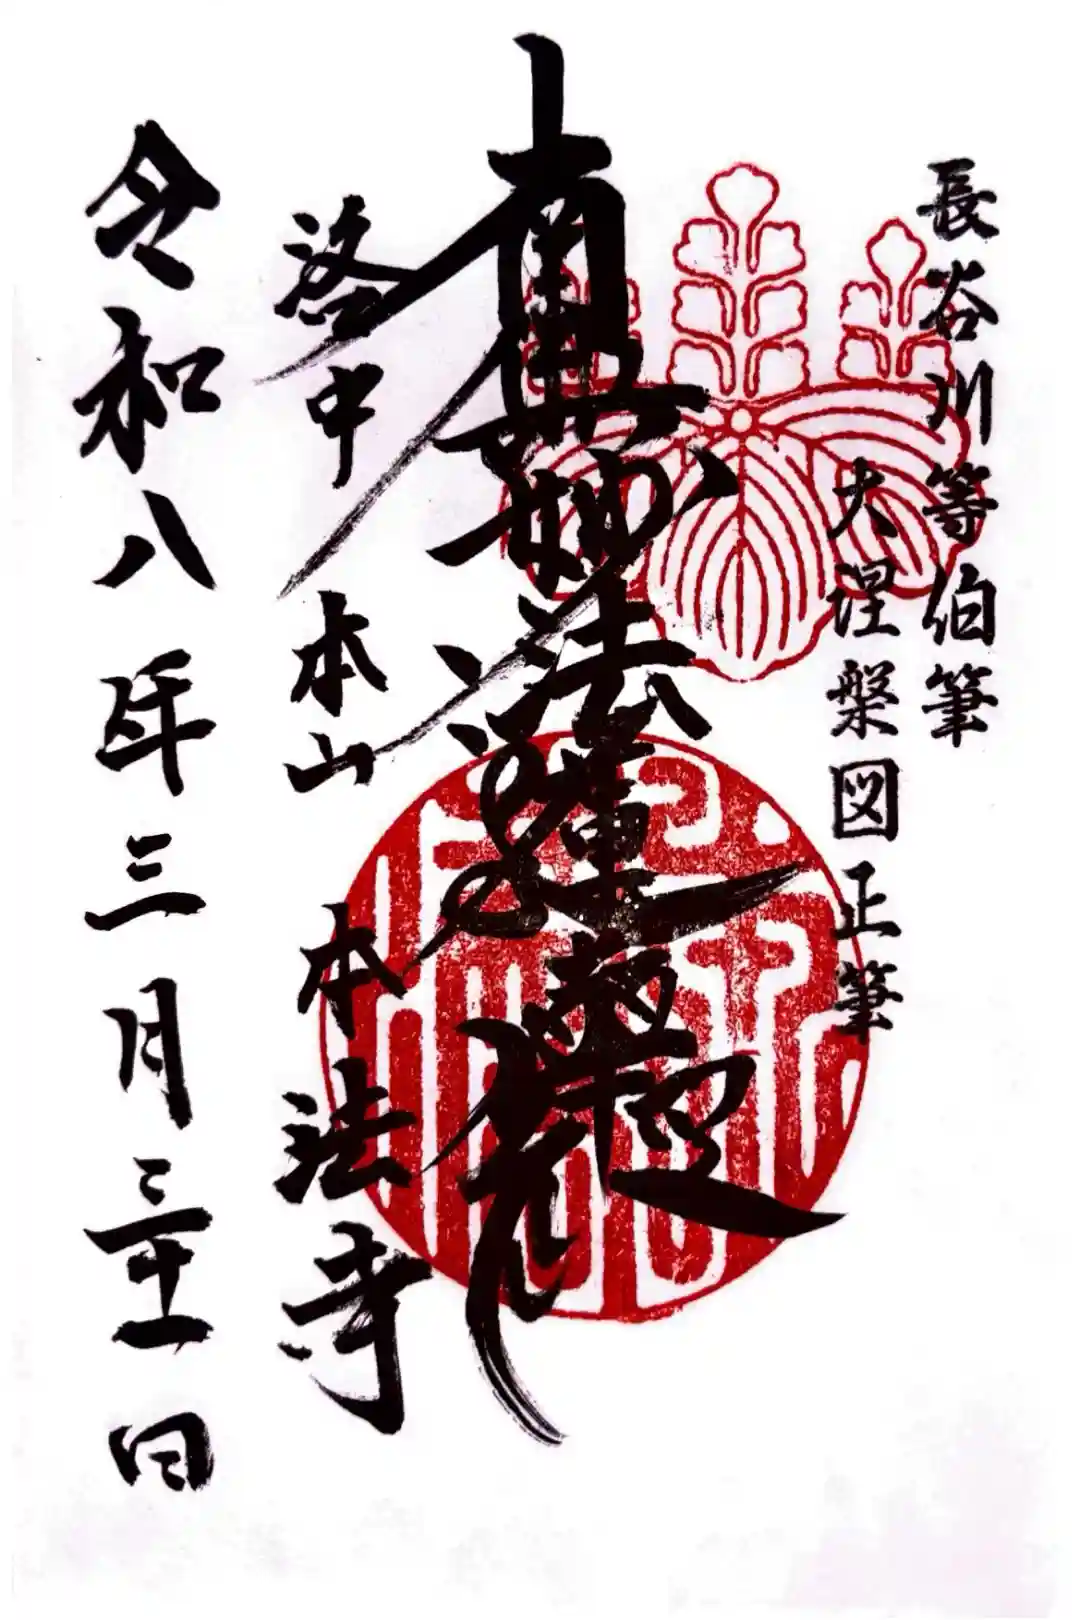 長谷川等伯筆
大涅槃図正筆
南無妙法蓮華経
洛中 本山 本法寺
令和八年三月三十一日